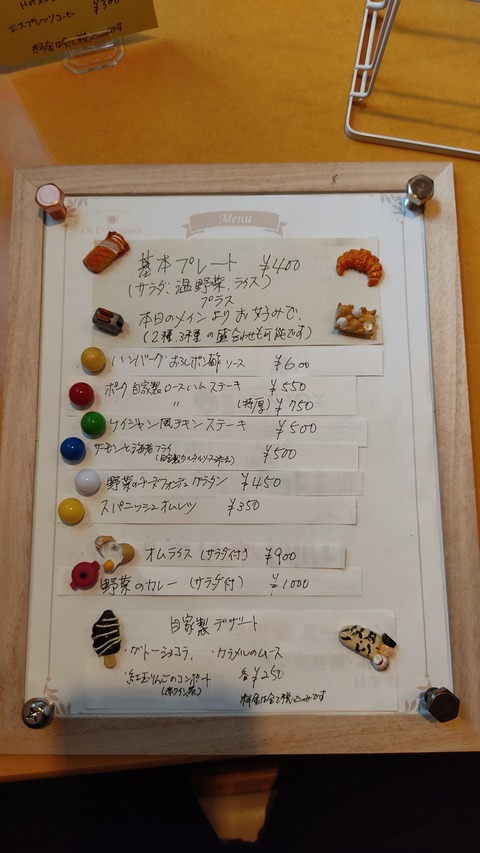 エスプレッソコーヒー ¥300
料金は全て税込みです
Menu
基本プレート ¥400
(サラダ、温野菜、ライス)
プラス
本日のメインよりお好みで、
(2種、3種の盛合わせも可能です)
ハンバーグ おろしポン酢ソース ¥600
ポーク自家製ロースハムステーキ ¥550
〃 (特厚) ¥750
ケイジャン風チキンステーキ ¥500
サーモンと海老フライ ¥500
(自家製タルタルソース添え)
野菜のチーズフォンデュグラタン ¥450
スパニッシュオムレツ ¥350
オムライス (サラダ付) ¥900
野菜のカレー (サラダ付) ¥1000
自家製デザート
・ガトーショコラ、 ・カラメルのムース
・紅玉りんごのコンポート 各¥250
(赤ワイン煮)
料金は全て税込みです